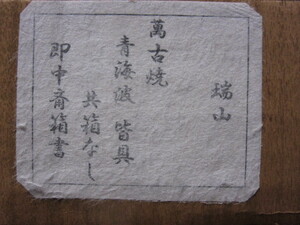 瑞山
萬古燒
青海波 皆具
共箱なし
即中斎箱書